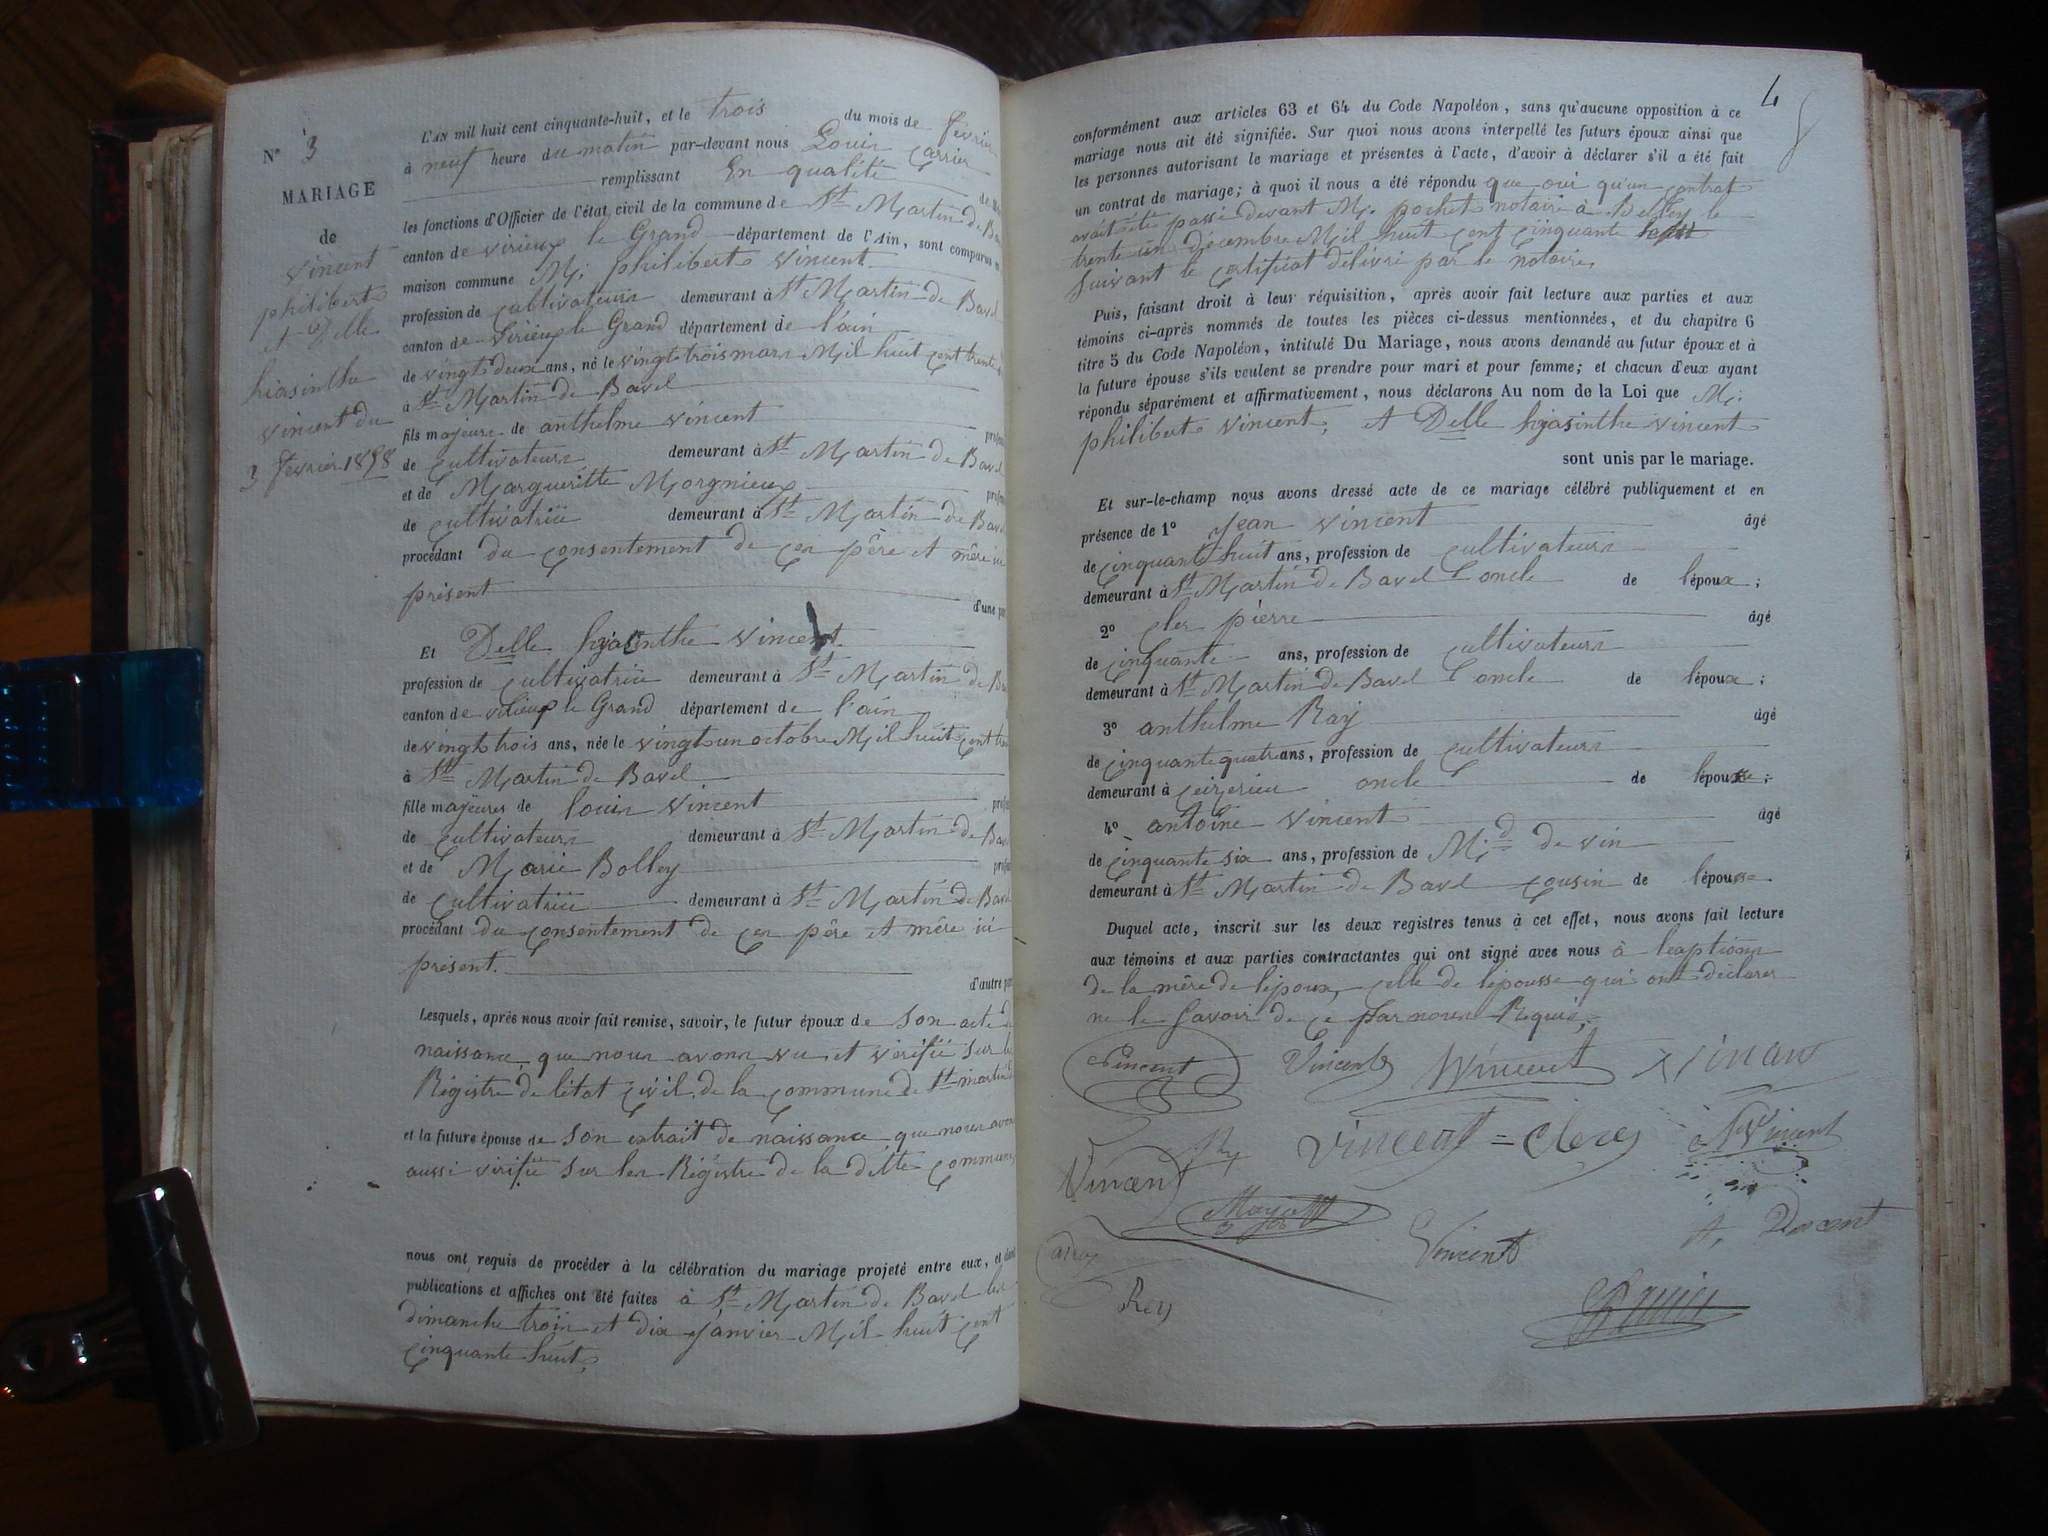 N° 3
MARIAGE
de
vincent
philibert
et Delle
hiasinthe
vincent du
3 fevrier 1858
L'AN mil huit cent cinquante-huit, et le trois du mois de fevrier
à neuf heure du matin par-devant nous Louis Carrier
remplissant En qualité de
les fonctions d'Officier de l'état civil de la commune de St Martin de Ba
canton de virieux le Grand département de l'Ain, sont comparus en
maison commune M. philibert vincent
profession de cultivateur demeurant à St Martin de Bavel
canton de virieux le Grand département de l'ain
de vingt deux ans, né le vingt trois mars Mil huit cent trente
à St Martin de Bavel
fils majeur de anthelme vincent profes
de cultivateur demeurant à St Martin de Bavel
et de Margueritte Morgnieux profes
de cultivatrice demeurant à St Martin de Bavel
procédant du consentement de ces père et mère ici
présent d'une part
Et Delle hyasinthe vincent
profession de cultivatrice demeurant à St Martin de Ba
canton de virieux le Grand département de l'ain
de vingt trois ans, née le vingt un octobre Mil huit cent tren
à St Martin de Bavel
fille majeure de louis vincent profes
de cultivateur demeurant à St Martin de Bav
et de Marie Bolley profes
de cultivatrice demeurant à St Martin de Bav
procédant du consentement de ces père et mère ici
présent. d'autre part
Lesquels, après nous avoir fait remise, savoir, le futur époux de son acte de
naissance que nous avons vu et vérifié sur le
Régistre de l'état civil de la commune de St martin
et la future épouse de son extrait de naissance que nous avons
aussi vérifié sur les Régistre de la ditte commune
nous ont requis de procéder à la célébration du mariage projeté entre eux, et dont
publications et affiches ont été faites à St Martin de Bavel les
dimanche trois et dix janvier Mil huit cent
cinquante huit,
4
conformément aux articles 63 et 64 du Code Napoléon, sans qu'aucune opposition à ce
mariage nous ait été signifiée. Sur quoi nous avons interpellé les futurs époux ainsi que
les personnes autorisant le mariage et présentes à l'acte, d'avoir à déclarer s'il a été fait
un contrat de mariage; à quoi il nous a été répondu que oui qu'un contrat
avait été passé devant M. pochet notaire à Belley le
trente un décembre Mil huit cent cinquante sept
suivant le certificat délivré par le notaire,
Puis, faisant droit à leur réquisition, après avoir fait lecture aux parties et aux
témoins ci-après nommés de toutes les pièces ci-dessus mentionnées, et du chapitre 6
titre 5 du Code Napoléon, intitulé Du Mariage, nous avons demandé au futur époux et à
la future épouse s'ils veulent se prendre pour mari et pour femme; et chacun d'eux ayant
répondu séparément et affirmativement, nous déclarons Au nom de la Loi que M.
philibert vincent, et Delle hyasinthe vincent
sont unis par le mariage.
Et sur-le-champ nous avons dressé acte de ce mariage célébré publiquement et en
présence de 1° Jean vincent âgé
de cinquante huit ans, profession de cultivateur
demeurant à St Martin de Bavel oncle de l'époux;
2° cler pierre âgé
de cinquante ans, profession de cultivateur
demeurant à St Martin de Bavel oncle de l'époux;
3° anthelme Ray âgé
de cinquante quatre ans, profession de cultivateur
demeurant à ceizerieu oncle de l'épouse;
4° antoine vincent âgé
de cinquante six ans, profession de Md de vin
demeurant à St Martin de Bavel cousin de l'épouse
Duquel acte, inscrit sur les deux registres tenus à cet effet, nous avons fait lecture
aux témoins et aux parties contractantes qui ont signé avec nous à leaption
de la mère de l'époux, celle de l'épousse qui ont déclarer
ne le savoir de ce par nous Requis,
Vincent Vincent Vincent Vinant
Vincent = Clerc Vincent
Vincent
Vincent A. Vincent
Rey